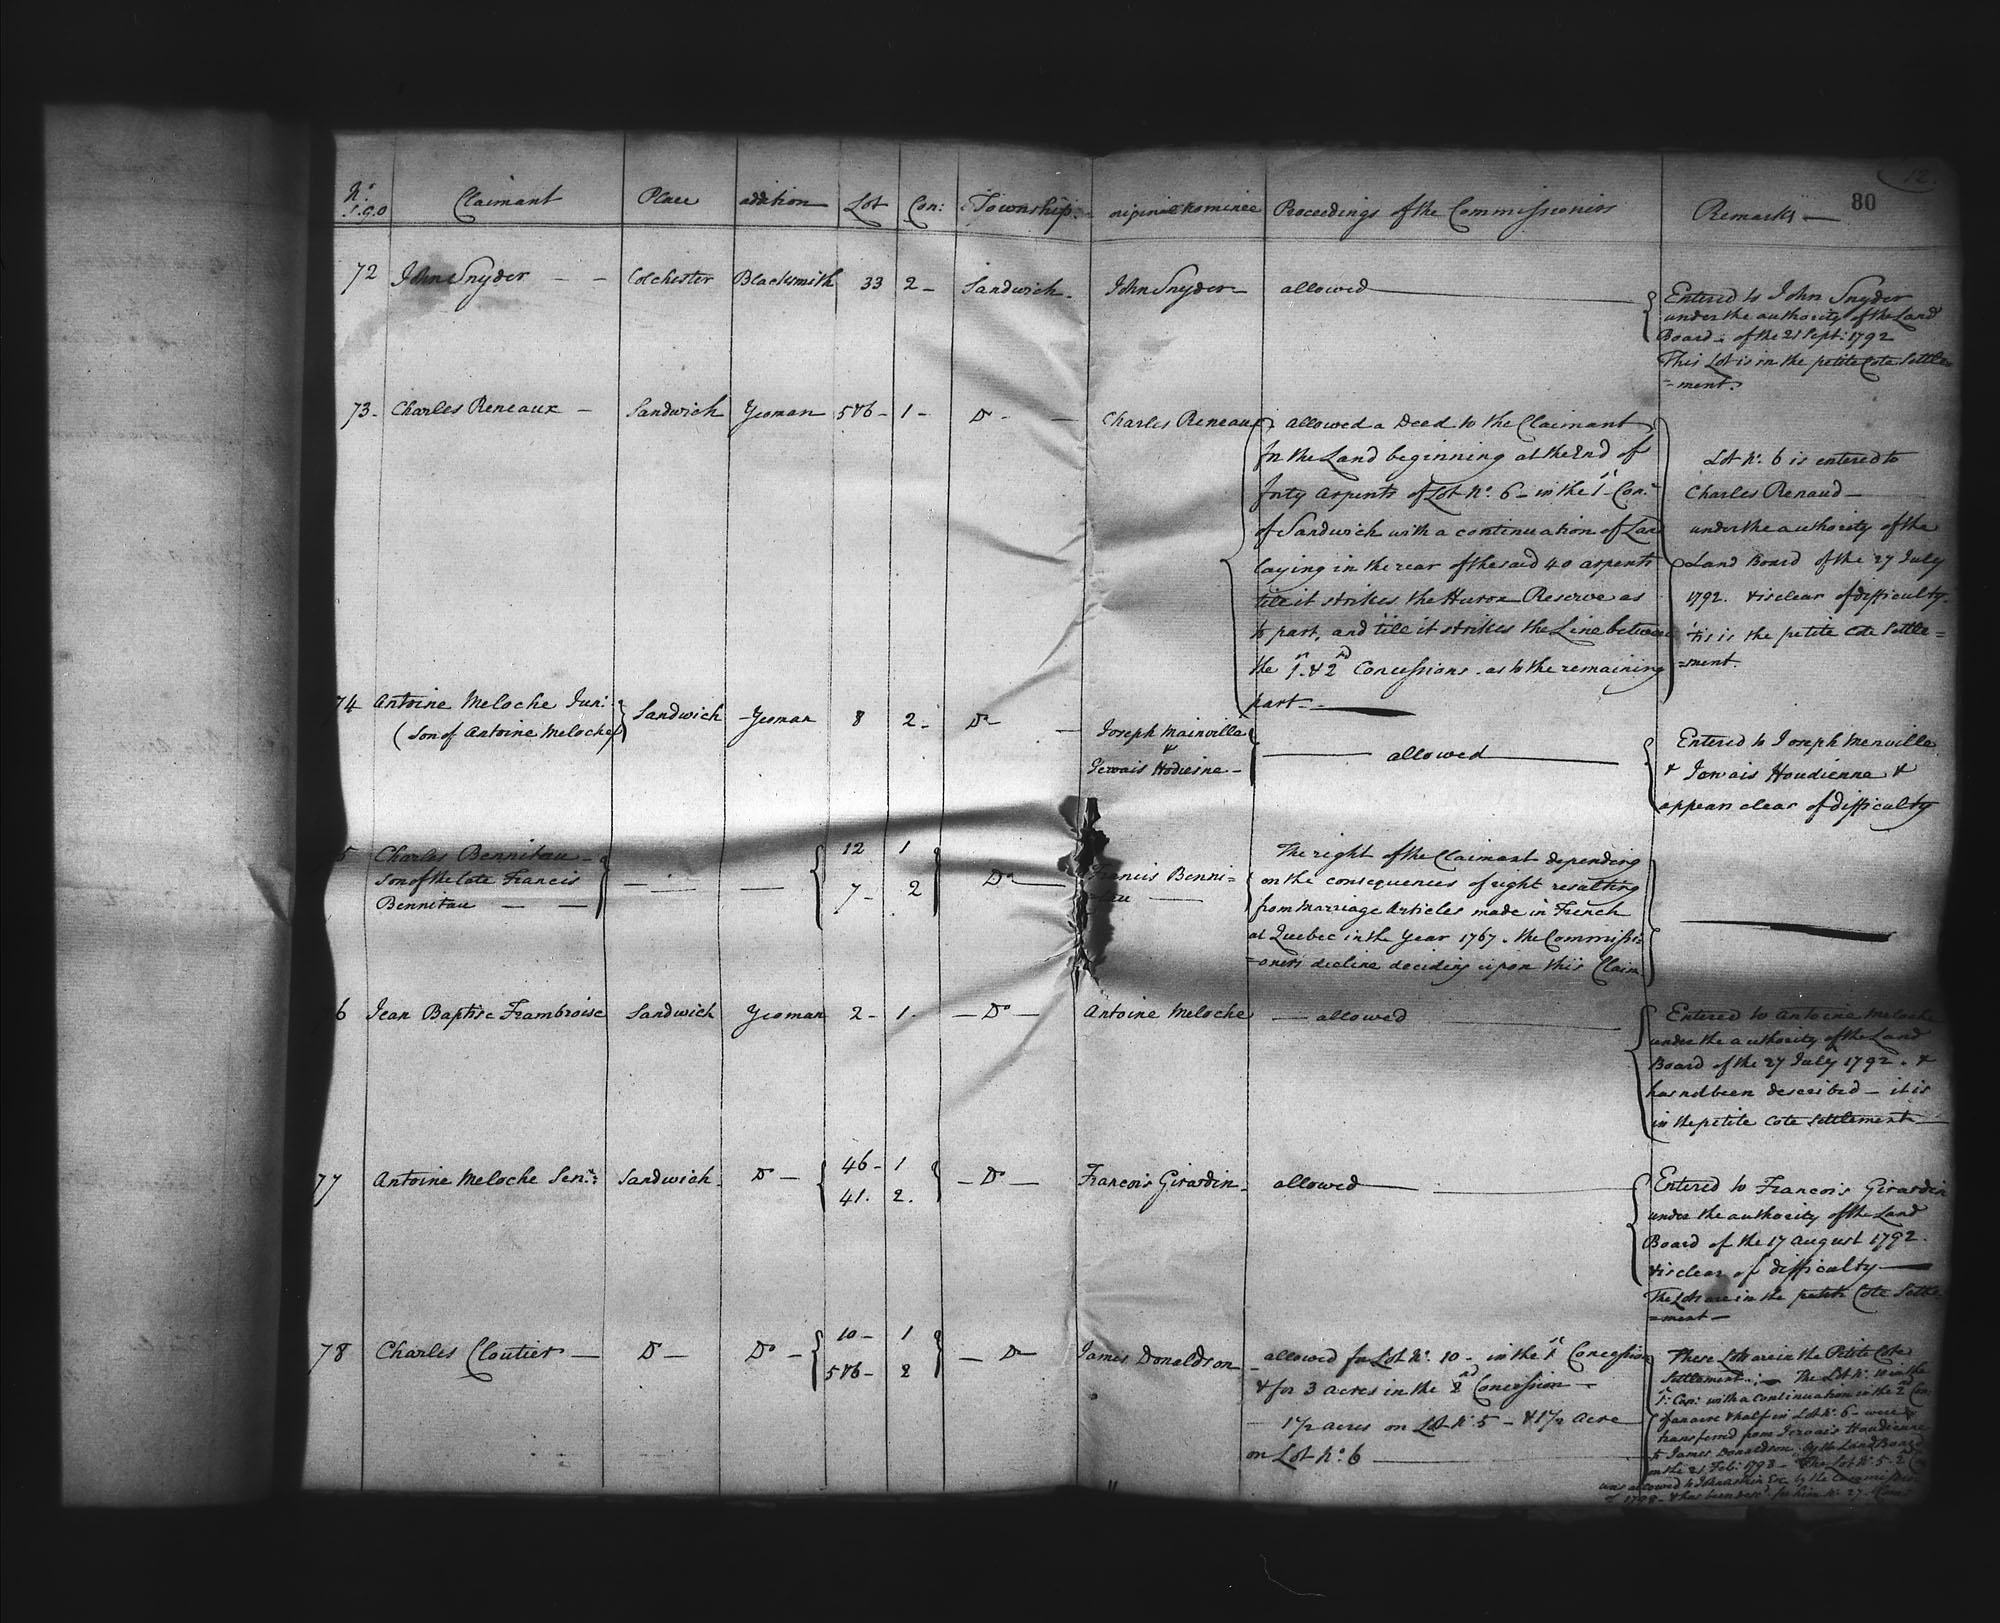 12.
80
No. Claimant Place addition Lot Con: Township original Nominee Proceedings of the Commissioners Remarks —
72 John Snyder — — Colchester Blacksmith 33 2 - Sandwich - John Snyder - allowed
Entered to John Snyder
under the authority of the Land
Board - of the 21 Sept: 1792
This Lot is in the petite Cote Settle=
=ment.
73 - Charles Reneaux - Sandwich Yeoman 5&6 - 1 - Do - — Charles Reneaux
allowed a Deed to the Claimant
for the Land beginning at the End of
forty arpents of Lot No. 6 - in the 1st Con:
of Sandwich with a continuation of Land
laying in the rear of the said 40 arpents
till it strikes the Huron Reserve as
to part, and till it strikes the Line between
the 1st & 2nd Concessions - as to the remaining
part - -
Lot No. 6 is entered to
Charles Renaud —
under the authority of the
Land Board of the 27 July
1792. & is clear of difficulty -
'tis in the petite Cote Settle=
=ment -
74 Antoine Meloche Junr:
(Son of Antoine Meloche) Sandwich - Yeoman 8 2 - Do - —
Joseph Mainville
&
Jervais Hodiesne -
— allowed —
Entered to Joseph Menville
& Jervais Houdienne &
appears clear of difficulty
5 Charles Bennitau -
Son of the late Francis
Bennitau — —
12 1
7 - 2
Do - Francis Benni=
The right of the Claimant depending
on the consequences of right resulting
from Marriage Articles made in French
at Quebec in the Year 1767. the Commissi=
=oners decline deciding upon this Claim.
6 Jean Baptise Frambroise Sandwich Yeoman 2 - 1 - — Do — Antoine Meloche — allowed
Entered to Antoine Meloche
under the authority of the Land
Board of the 27 July 1792. &
has not been described - it is
in the petite Cote Settlement -
77 Antoine Meloche Senr: Sandwich - Do — 46 - 1
41. 2.
— Do — Francois Girardin - allowed —
Entered to Francois Girardin
under the authority of the Land
Board of the 17 August 1792.
& is clear of difficulty —
The Lots are in the petite Cote Settle=
=ment -
78 Charles Cloutier — Do — Do — 10 - 1
5&6 - 2
— Do James Donaldson
allowed for Lot No. 10 - in the 1st Concession
& for 3 acres in the 2nd Concession -
- 1 1/2 acres on Lot No. 5 - & 1 1/2 Acre
on Lot No. 6 —
These Lots are in the Petite Cote
Settlement - The Lot No. 10 in the
1st Con: with a continuation in the 2nd Con:
of an acre & half in Lot No. 6 - were
transferred from Jervais Houdienne
to James Donaldson by the Land Board
on the 21 Feb: 1793 - The Lot No. 5 - 2nd
was allowed to J Askin Esq by the Commissio
of 1798 -